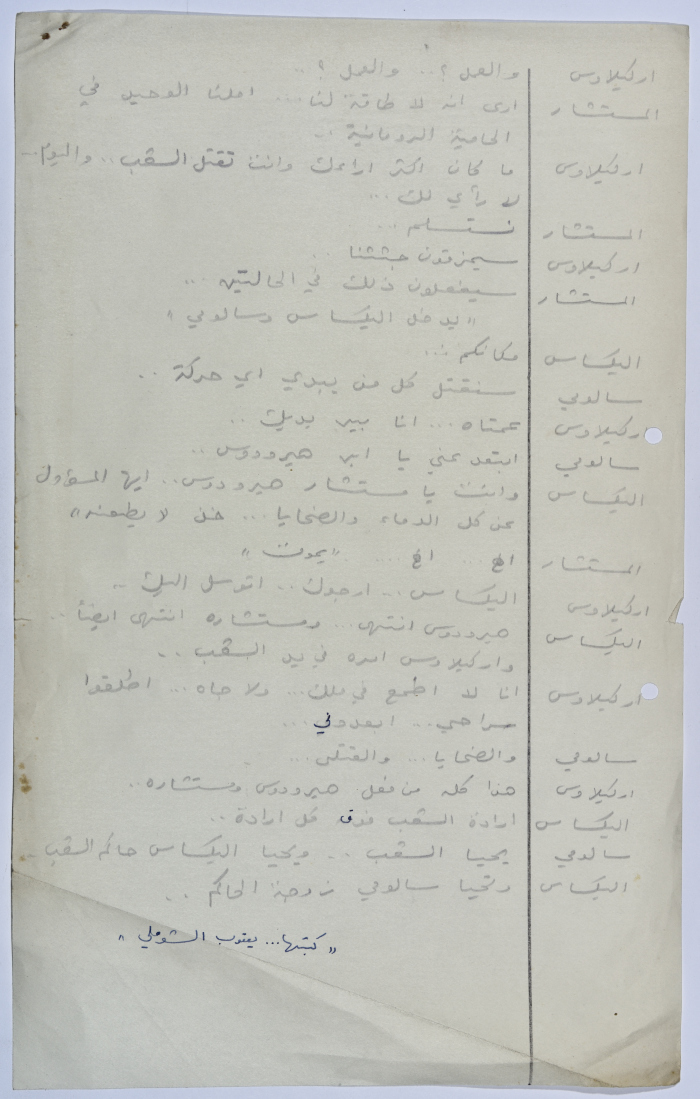 اركيلاوس والعمل ؟.. والعمل ؟..
المستشار ارى انه لا طاقة لنا... املنا الوحيد في
الحامية الرومانية ..
اركيلاوس ما كان اكثر اراءك وانت تقتل الشعب.. واليوم...
لا رأي لك...
المستشار نستسلم ...
اركيلاوس سيمزقون جثثنا ..
المستشار سيفعلون ذلك في الحالتين ...
" يدخل اليكساس وسالومي "
اليكساس مكانكم ...
سالومي سنقتل كل من يبدي اي حركة ..
اركيلاوس عمتاه... انا بين يديك ..
سالومي ابتعد عني يا ابن هيرودوس ..
اليكساس وانت يا مستشار هيرودوس.. ايها المسؤول
عن كل الدماء والضحايا... خذ " يطعنه "
المستشار اخ ... اخ .... " يموت "
اركيلاوس اليكساس... ارجوك... اتوسل اليك ..
اليكساس هيرودوس انتهى... ومستشاره انتهى ايضاً ..
واركيلاوس امره في يد الشعب ..
اركيلاوس انا لا اطمع في ملك... ولا جاه... اطلقوا
سراحي... ابعدوني ...
سالومي والضحايا... والقتلى ...
اركيلاوس هذا كله من فعل هيرودوس ومستشاره..
اليكساس ارادة الشعب فوق كل ارادة ..
سالومي يحيا الشعب .. ويحيا اليكساس حاكم الشعب ..
اليكساس وتحيا سالومي زوجة الحاكم ..
" كتبها... يعقوب الشوملي "